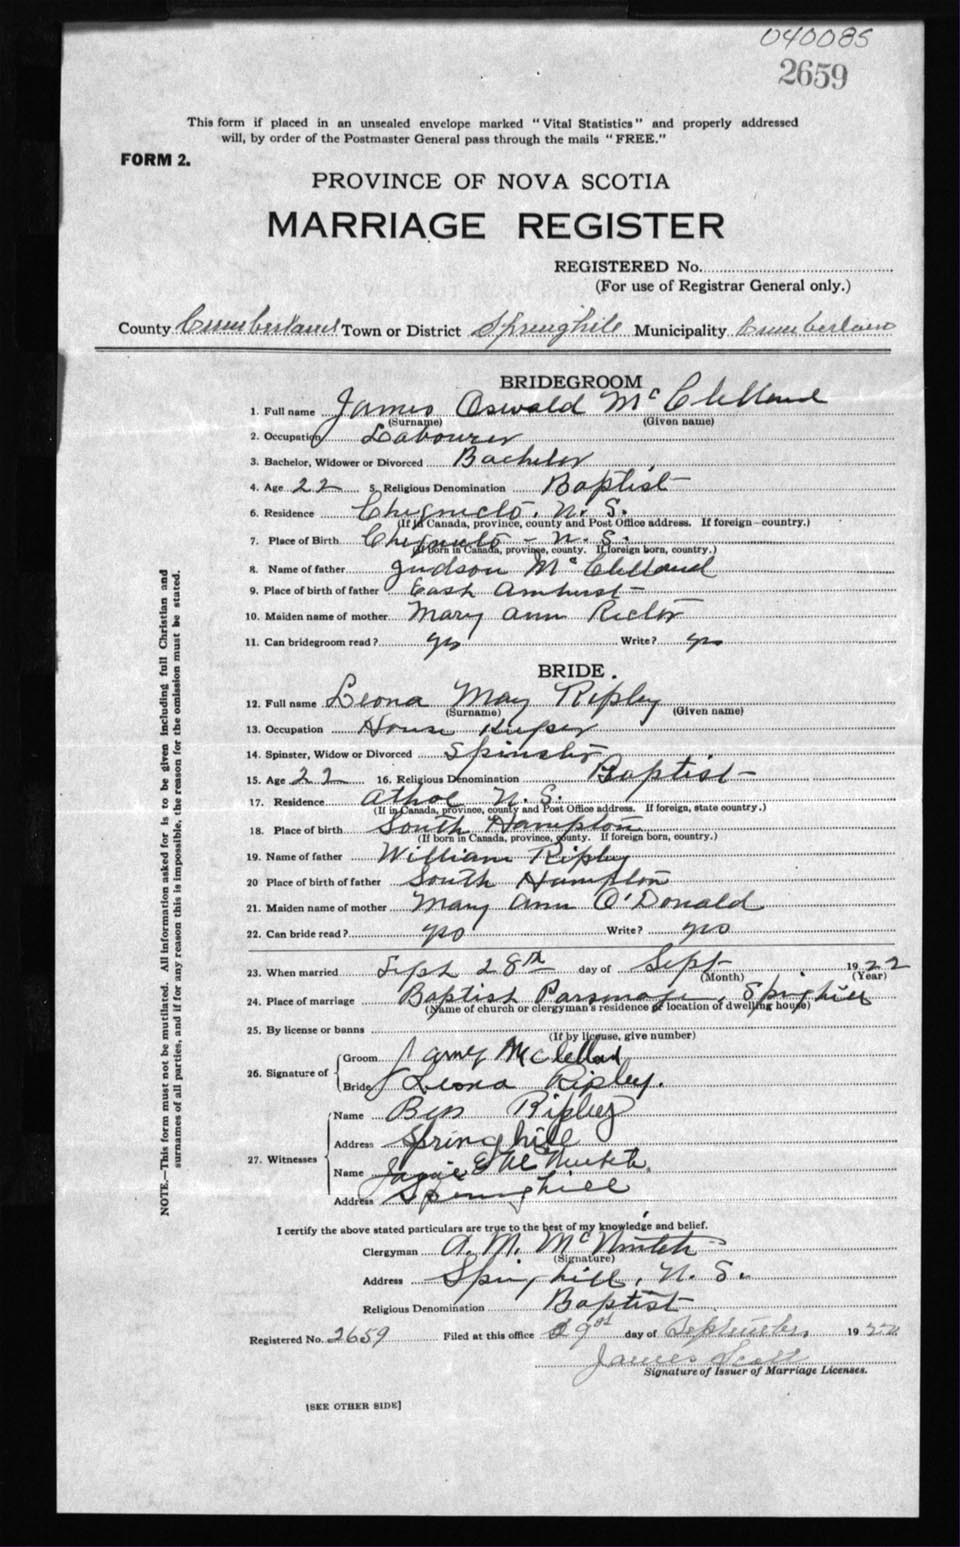 040085
2659
This form if placed in an unsealed envelope marked "Vital Statistics" and properly addressed
will, by order of the Postmaster General pass through the mails "FREE."
FORM 2.
PROVINCE OF NOVA SCOTIA
MARRIAGE REGISTER
REGISTERED No.
(For use of Registrar General only.)
County Cumberland Town or District Springhill Municipality Cumberland
BRIDEGROOM
1. Full name James Oswald McClelland
(Surname) (Given name)
2. Occupation Labourer
3. Bachelor, Widower or Divorced Bachelor
4. Age 22 5. Religious Denomination Baptist
6. Residence Chignecto, N. S.
(If in Canada, province, county and Post Office address. If foreign—country.)
7. Place of Birth Chignecto - N. S.
(If born in Canada, province, county. If foreign born, country.)
8. Name of father Judson McClelland
9. Place of birth of father East Amherst
10. Maiden name of mother Mary Ann Rector
11. Can bridegroom read? yes Write? yes
BRIDE.
12. Full name Leona May Ripley
(Surname) (Given name)
13. Occupation House Keeper
14. Spinster, Widow or Divorced Spinster
15. Age 22 16. Religious Denomination Baptist
17. Residence Athol N. S.
(If in Canada, province, county and Post Office address. If foreign, state country.)
18. Place of birth South Hampton
(If born in Canada, province, county. If foreign born, country.)
19. Name of father William Ripley
20 Place of birth of father South Hampton
21. Maiden name of mother Mary Ann O'Donald
22. Can bride read? yes Write? yes
23. When married Sept 28th day of Sept 1922
(Month) (Year)
24. Place of marriage Baptist Parsonage, Springhill
(Name of church or clergyman's residence or location of dwelling house)
25. By license or banns
(If by license, give number)
26. Signature of
Groom James McClelland
Bride Leona Ripley.
27. Witnesses
Name Ben Ripley
Address Springhill
Name E McNutch
Address Springhill
I certify the above stated particulars are true to the best of my knowledge and belief.
Clergyman A. M. McNutch
(Signature)
Address Springhill, N. S.
Religious Denomination Baptist
Registered No. 2659 Filed at this office 29 day of September, 1922
James Scott
Signature of Issuer of Marriage Licenses.
[SEE OTHER SIDE]
NOTE.—This form must not be mutilated. All information asked for is to be given including full Christian and
surnames of all parties, and if for any reason this is impossible, the reason for the omission must be stated.